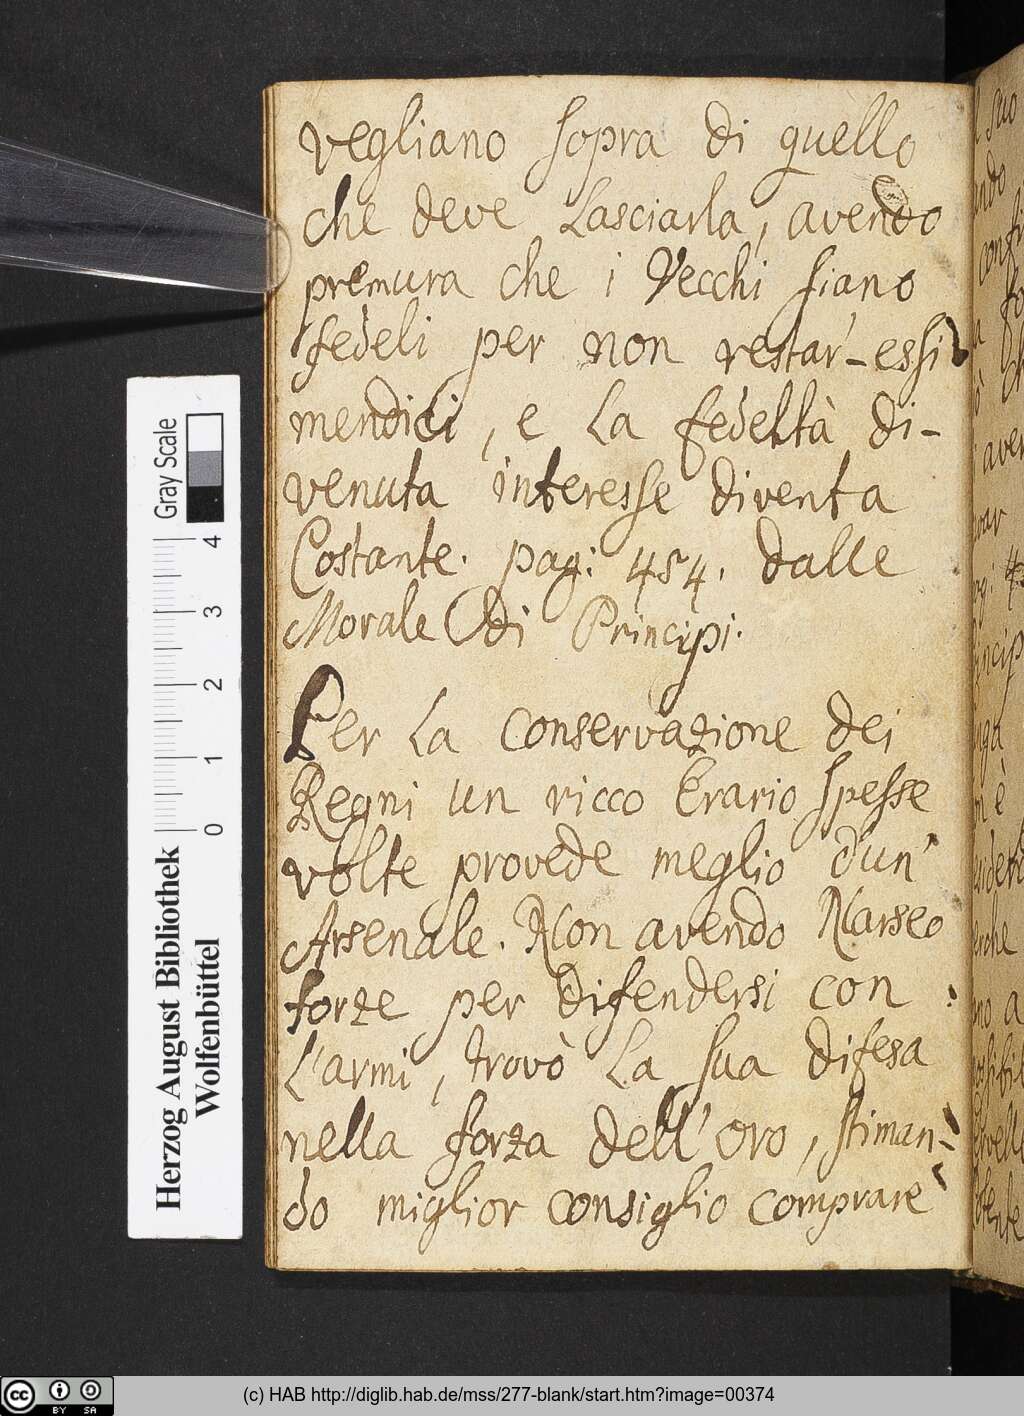 vegliano sopra di quello
che deve Lasciarla, avendo
premura che i Vecchi siano
fedeli per non restar'-essi
mendici, e La fedeltà di-
venuta interesse diventa
Costante. pag: 454. dalle
Morale di Principi.
Per La conservazione dei
Regni un ricco Erario spesse
volte provede meglio d'un'
Arsenale. Non avendo Narseo
forze per difendersi con
L'armi, trovò La sua difesa
nella forza dell'oro, stiman-
do miglior consiglio comprare
Gray Scale
4 3 2 1 0
Herzog August Bibliothek
Wolfenbüttel
(c) HAB http://diglib.hab.de/mss/277-blank/start.htm?image=00374
cc BY SA